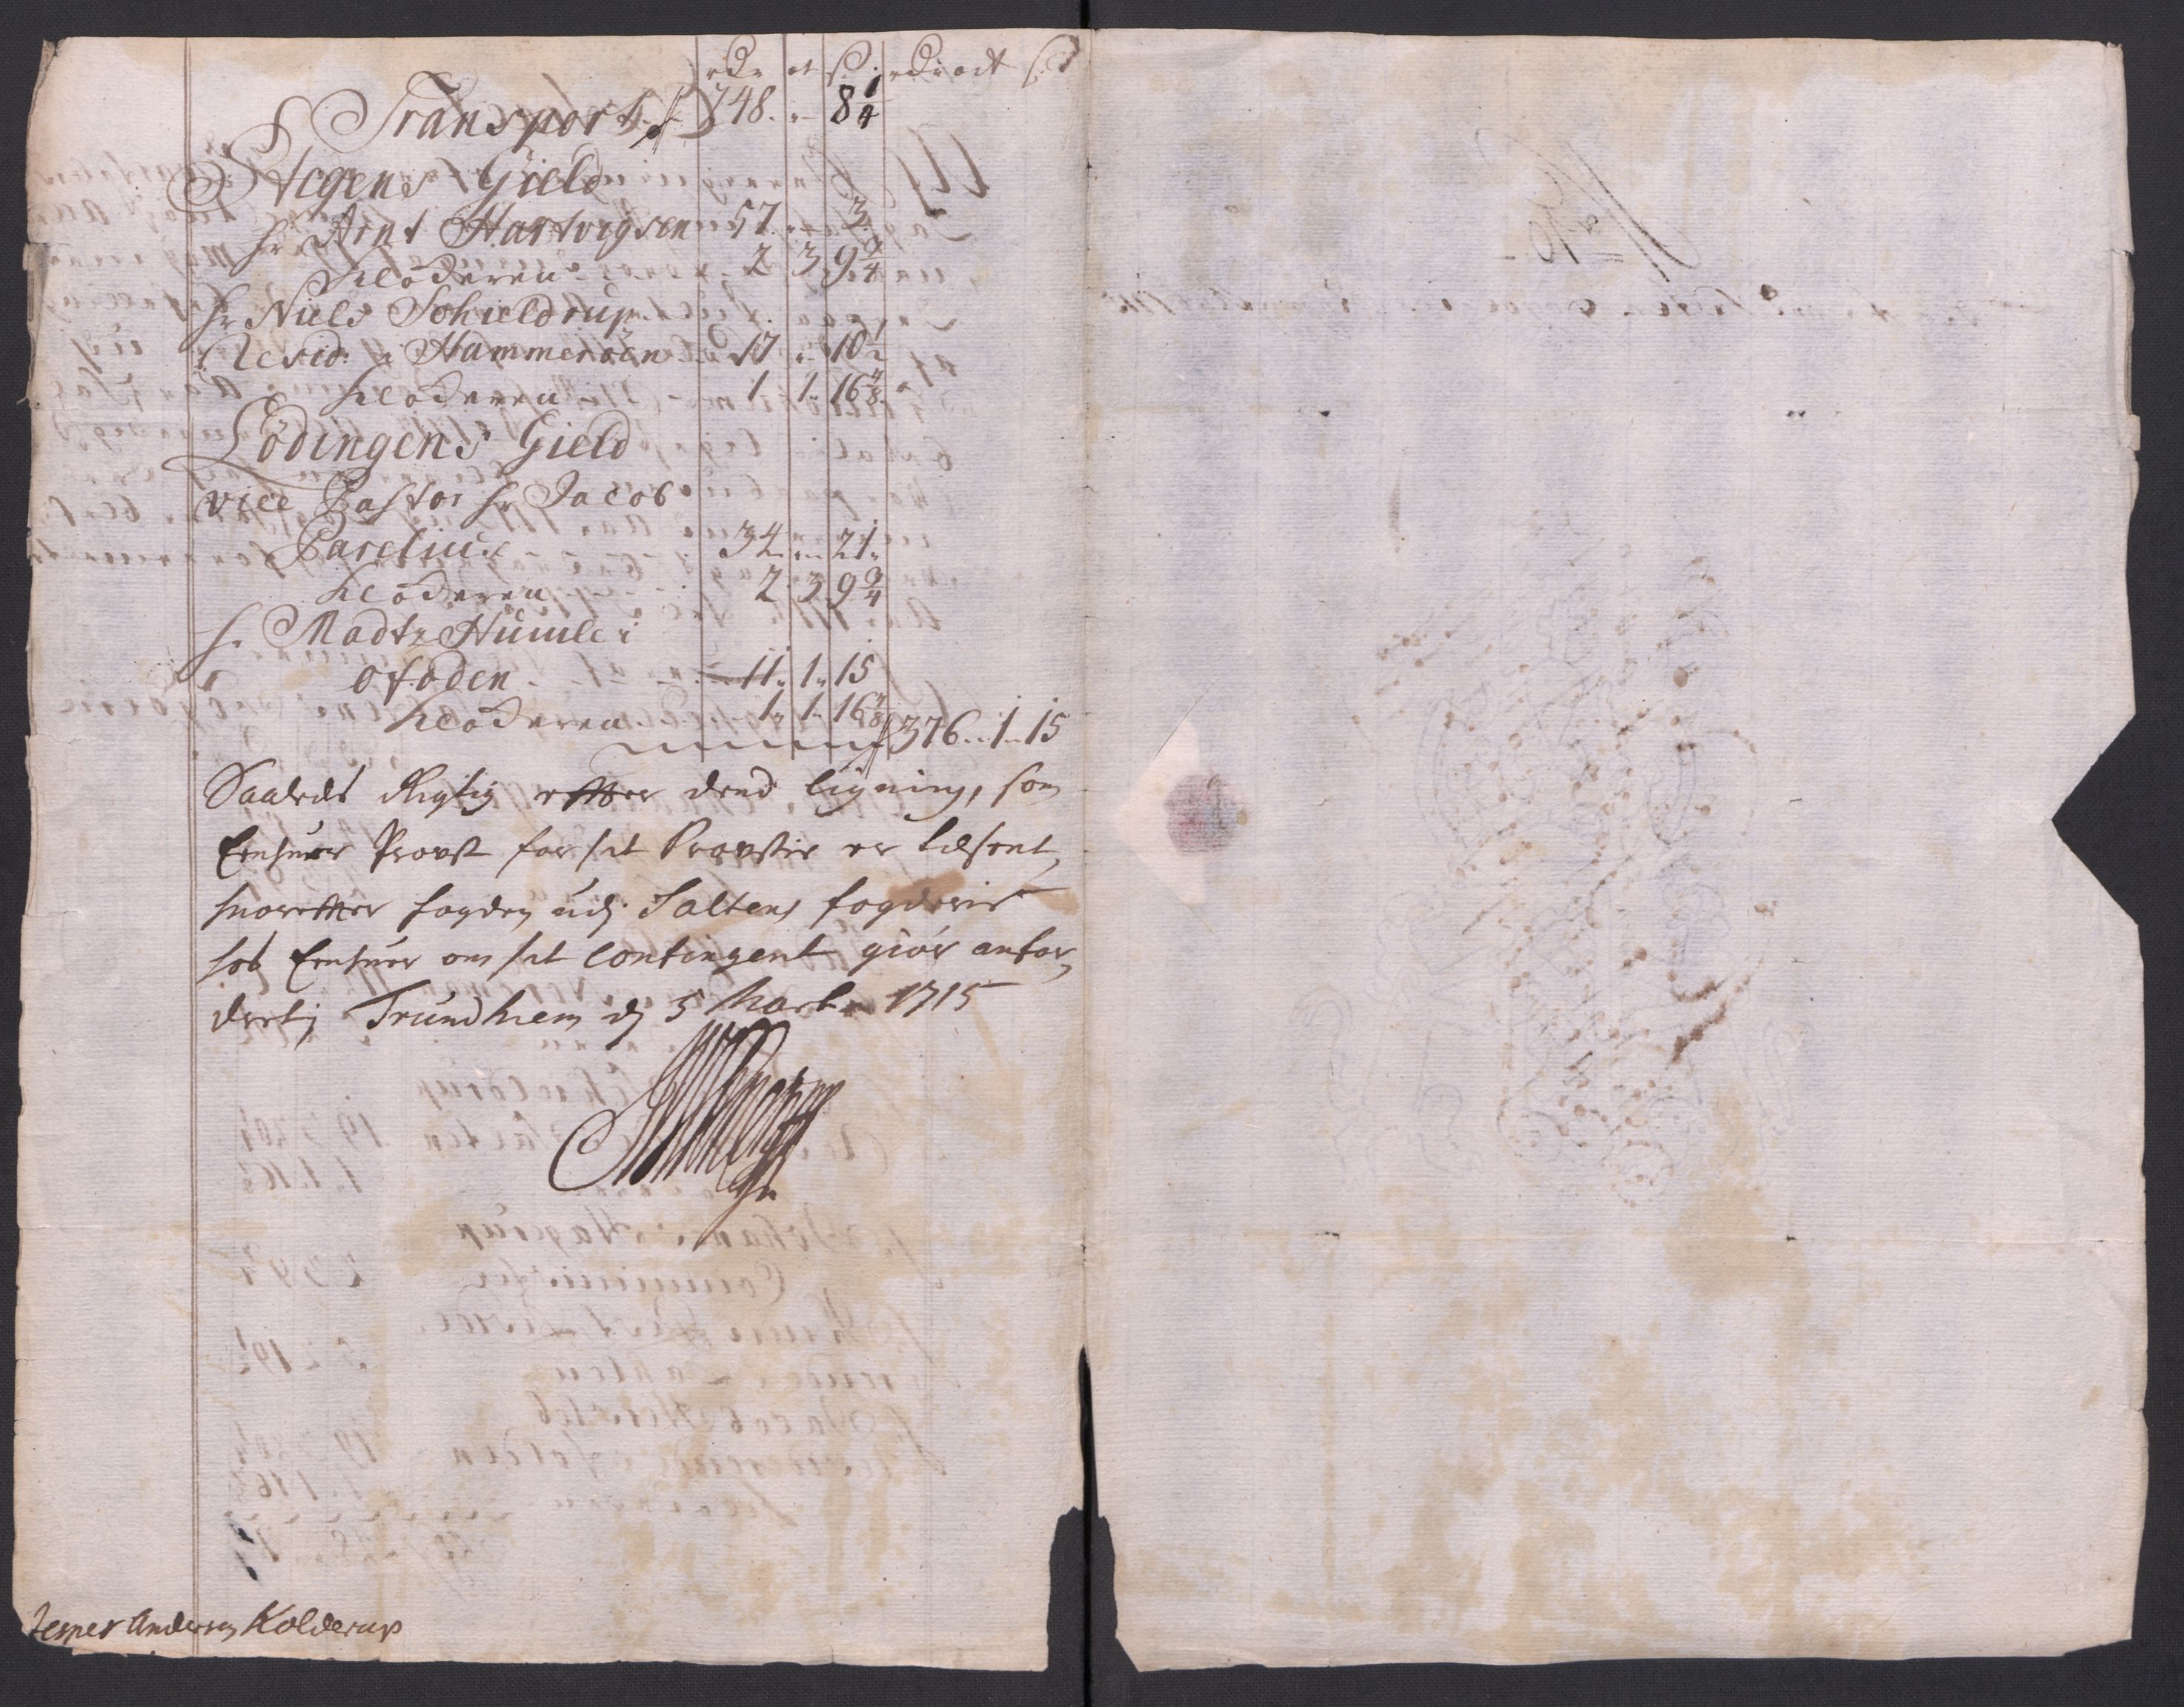 rdr ort ſ rdr ort ſ
Transport 248 " 8 1/4
Stegens Gield
hr Arnt Hartvigsen 57 " 3
Klockeren 2 3 9 3/4
hr Niels Schieldrup
Resid: i Hammeröen 17 " 10 1/2
Klockeren 1 1 16 7/8
Lödingens Gield
vice Pastor hr Jacob
Parelius 34 " 21
Klockeren 2 3 9 3/4
hr Madtz Humle i
ofoden 11 1 15
Klockeren 1 1 16 7/8 376 1 15
Saaledes Rigtig efter dend ligning, som
Enhuer Provst for sit Provstie er
huorefter fogden udj Saltens fogderie
hos Enhuer om sit contingent giör anfor
derlig Trundhiem dj 5 Marti 1715
Jesper Andersen Kolderup